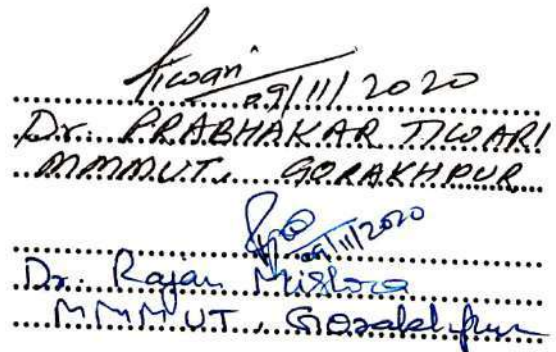 Tiwari
09/11/2020
Dr. PRABHAKAR TIWARI
MMMUT, GORAKHPUR
09/11/2020
Dr. Rajan Mishra
MMMUT, Gorakhpur